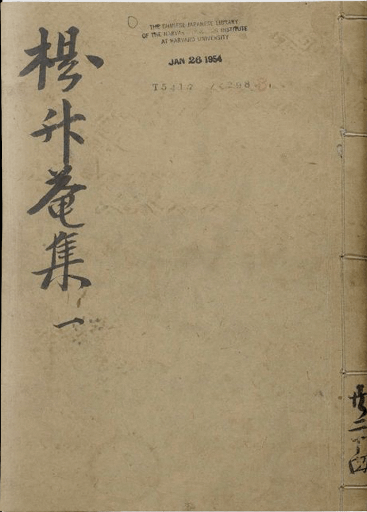 THE CHINESE-JAPANESE LIBRARY
OF THE HARVARD-YENCHING INSTITUTE
AT HARVARD UNIVERSITY
JAN 26 1954
楊升菴集
一